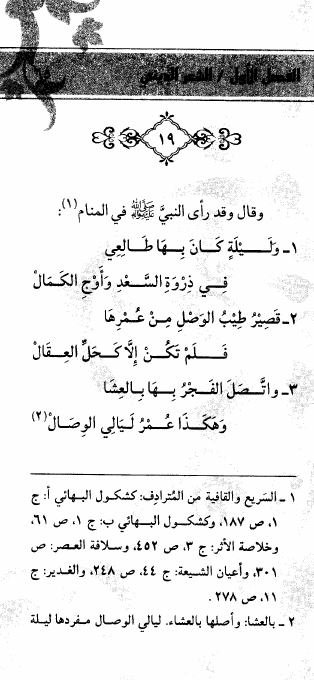 الفصل الأول / الشعر الديني
١٩
وقال وقد رأى النبيَّ ﷺ في المنام(١):
١ـ وَلَـيْـلَةٍ كَـانَ بِـهَـا طَـالِعِي
فِـي ذِرْوَةِ السَّـعْدِ وَأَوْجِ الكَمَالْ
٢ـ قَصِيْرُ طِيْبُ الوَصْلِ مِنْ عُمْرِهَا
فَـلَـمْ تَـكُـنْ إِلاَّ كَـحَلِّ العِقَالْ
٣ـ واتَّصَلَ الفَجْرُ بِـهَا بِـالعِشَا
وَهكَـذَا عُمْرُ لَـيَالِي الوِصَالْ(٢)
١ ـ السَريع والقافية من المُترادِف: كشكول البهائي أ: ج
١، ص ١٨٧، وكشكول البهائي ب: ج ١، ص ٦١،
وخلاصة الأثر: ج ٣، ص ٤٥٢، وسلافة العصر: ص
٣٠١، وأعيان الشيعة: ج ٤٤، ص ٢٤٨، والغدير: ج
١١، ص ٢٧٨.
٢ ـ بالعشا: وأصلها بالعشاء. ليالي الوصال مفردها ليلة